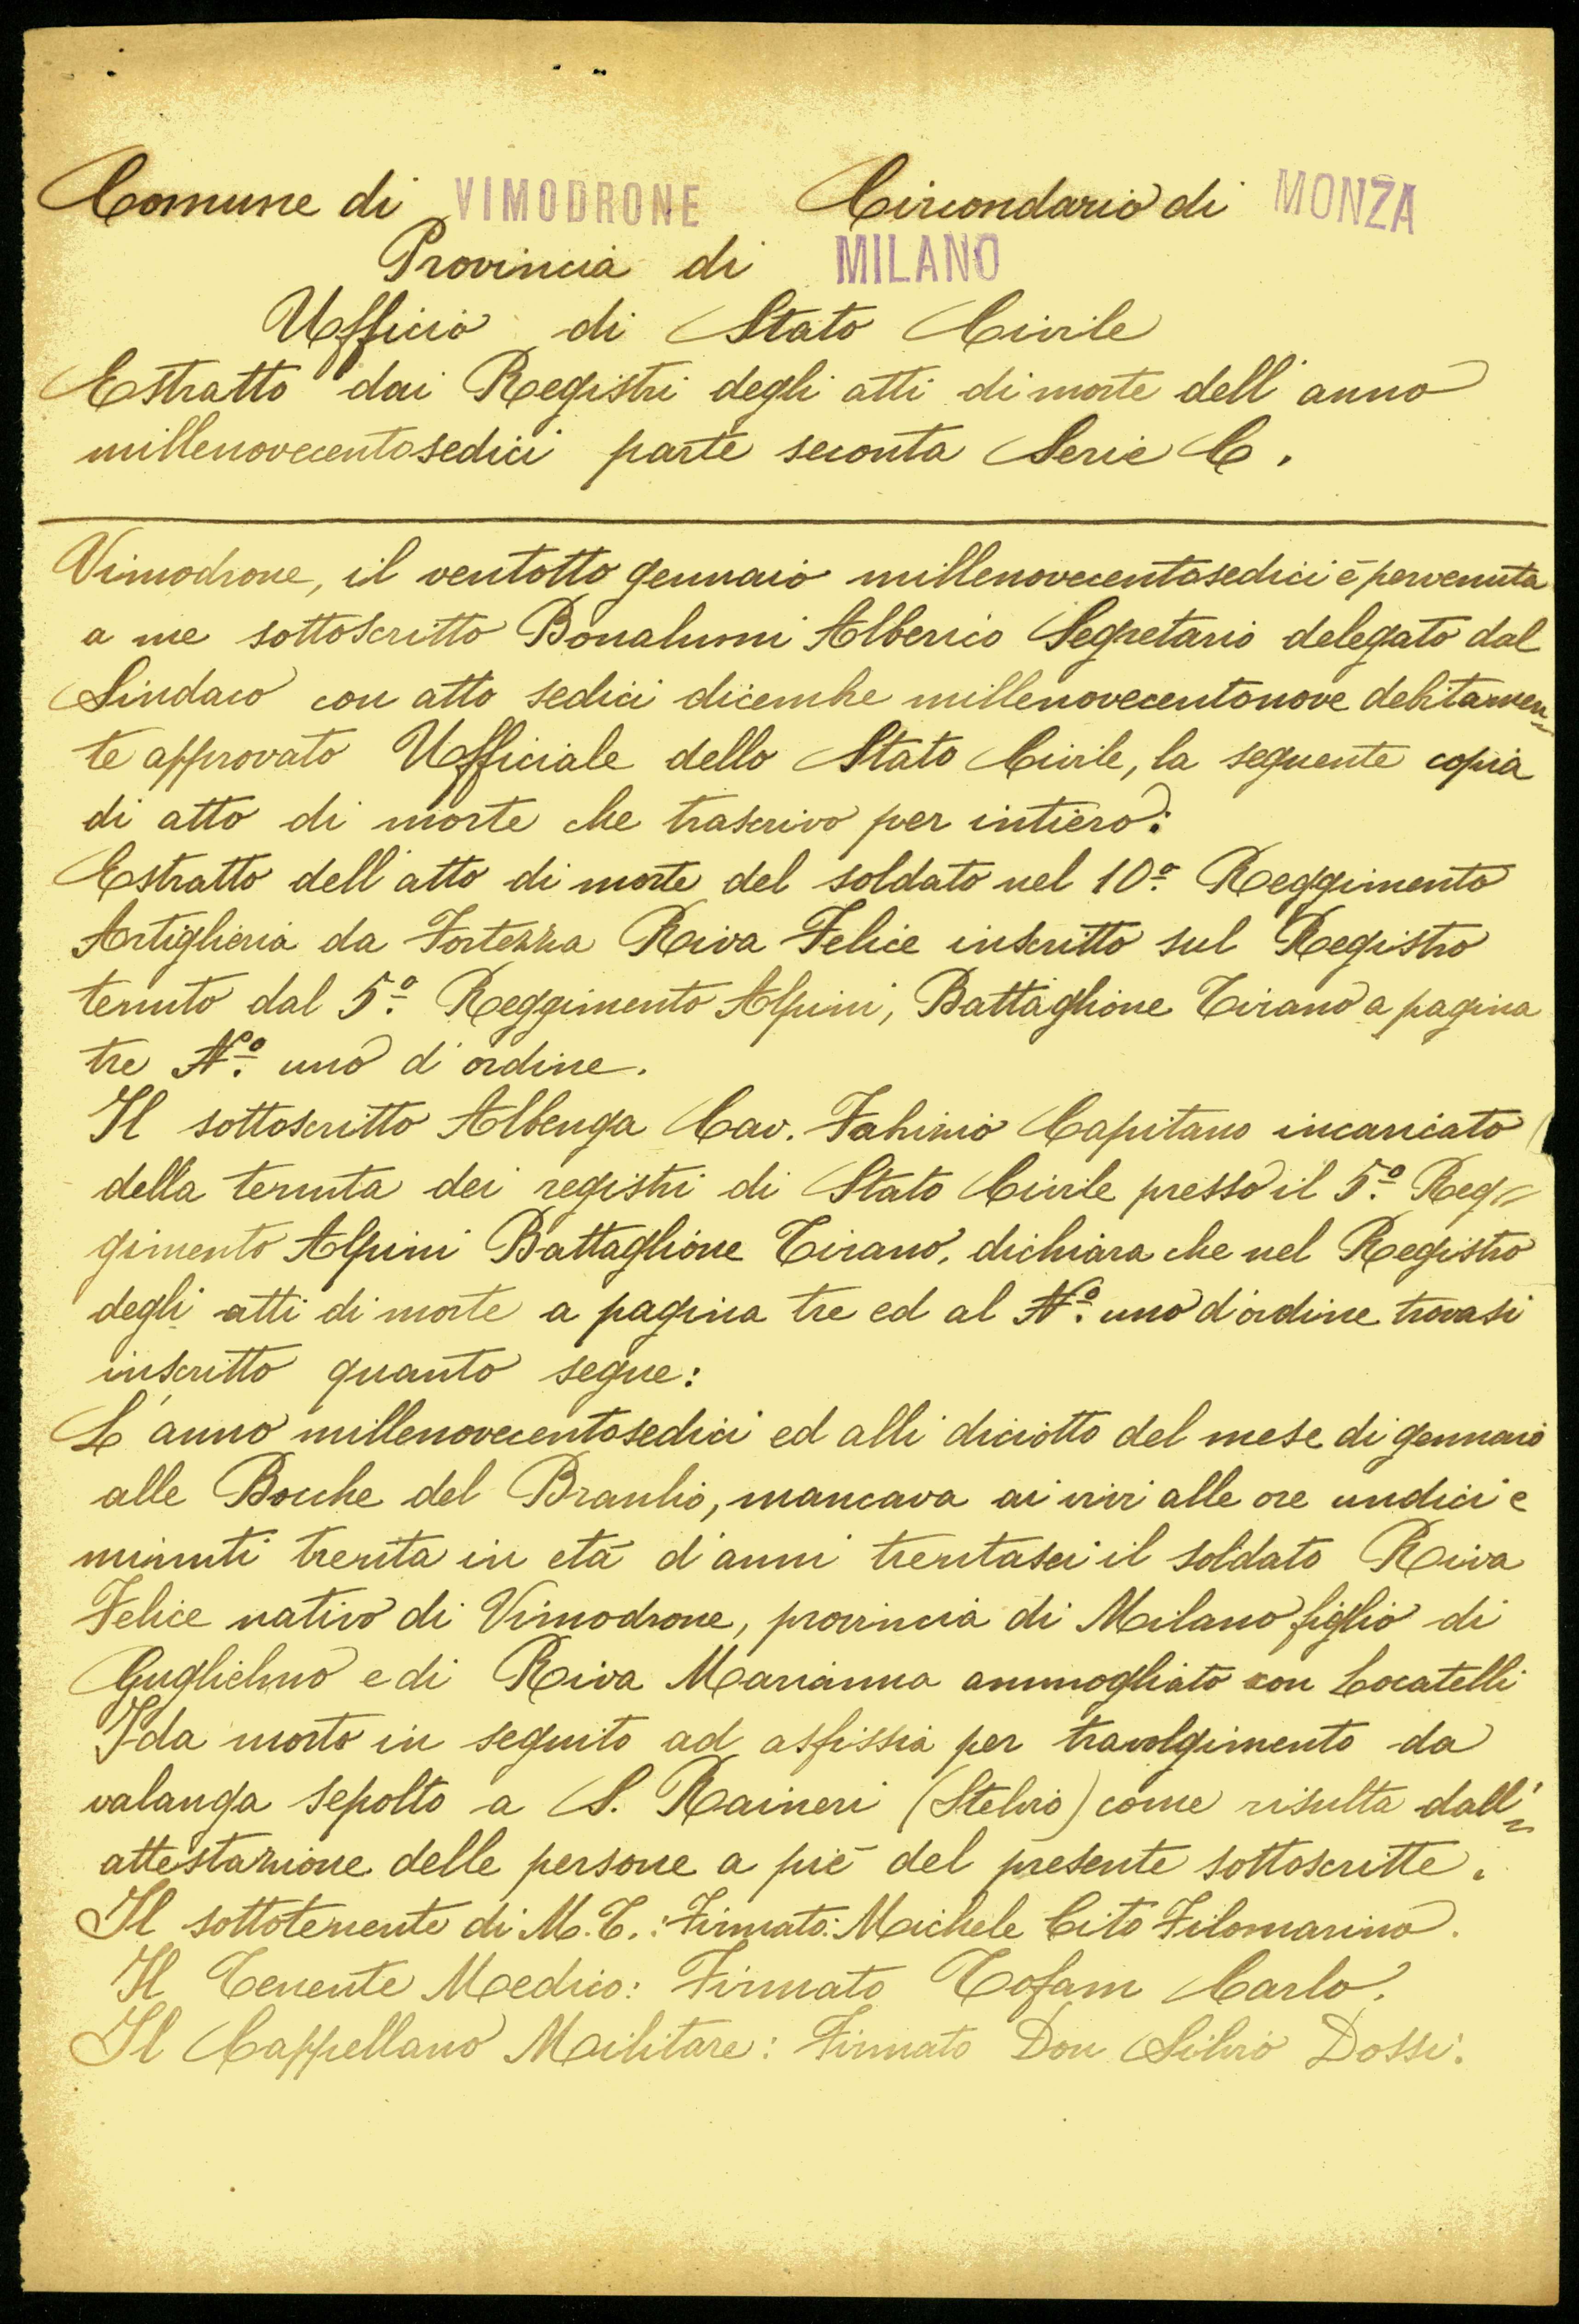 Comune di VIMODRONE Circondario di MONZA
Provincia di MILANO
Ufficio di Stato Civile
Estratto dai Registri degli atti di morte dell'anno
millenovecentosedici parte seconta Serie C.
Vimodrone, il ventotto gennaio millenovecentosedici è pervenuta
a me sottoscritto Bonalumi Alberico Segretario delegato dal
Sindaco con atto sedici dicembre millenovecentonove debitamen=
te approvato Ufficiale dello Stato Civile, la seguente copia
di atto di morte che trascrivo per intiero:
Estratto dell'atto di morte del soldato nel 10º Reggimento
Artiglieria da Fortezza Riva Felice inscritto sul Registro
tenuto dal 5º Reggimento Alpini, Battaglione Tirano a pagina
tre Nº uno d'ordine.
Il sottoscritto Albenga Cav. Capitano incaricato
della tenuta dei registri di Stato Civile presso il 5º Reg=
gimento Alpini Battaglione Tirano, dichiara che nel Registro
degli atti di morte a pagina tre ed al Nº uno d'ordine trovasi
inscritto quanto segue:
L'anno millenovecentosedici ed alli diciotto del mese di gennaio
alle Bocche del Braulio, mancava ai vivi alle ore undici e
minuti trenta in età d'anni trentasei il soldato Riva
Felice nativo di Vimodrone, provincia di Milano figlio di
Guglielmo e di Riva Marianna ammogliato con Locatelli
Ida morto in seguito ad asfissia per travolgimento da
valanga sepolto a S. Raineri (Stelvio) come risulta dall'=
attestazione delle persone a piè del presente sottoscritte.
Il sottotenente di M.T.: Firmato: Michele Cito Filomarino.
Il Tenente Medico: Firmato Carlo.
Il Cappellano Militare: Firmato Don Silvio Dossi.